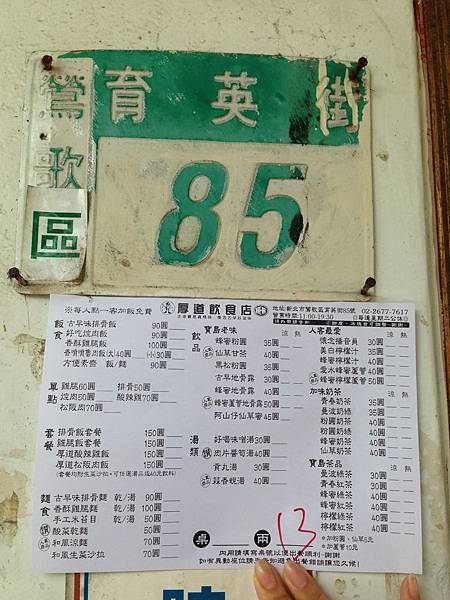 鶯歌區
育英街
85
※每人點一客加飯免費
厚道飲食店
地址:新北市鶯歌區育英街85號 02-2677-7617
營業時間:11:00-19:30 ◎每週星期二公休◎
飯食
古早味排骨飯 90圓
好吃焢肉飯 90圓
香酥雞腿飯 100圓
香噴噴魯肉飯(大)40圓 (小)30圓
方便素齋 飯/麵 90圓
單點
雞腿60圓 排骨50圓
焢肉50圓 酸辣雞70圓
松阪肉70圓
套餐
排骨飯套餐 150圓
雞腿飯套餐 150圓
厚道酸辣雞飯 150圓
厚道松阪肉飯 150圓
麵食
古早味排骨麵 乾/湯 90圓
香酥雞腿麵 乾/湯 100圓
手工米苔目 乾/湯 50圓
酸菜乾麵 50圓
和風涼麵 70圓
和風生菜沙拉 70圓
飲品
寶島老味 涼 熱
蜂蜜粉圓 35圓
仙草甘茶 40圓
黑松粉圓 35圓
古早地骨露 30圓
蜂蜜地骨露 40圓
蜂蜜蘆薈地骨露50圓
阿山仔仙草蜜45圓
湯類
好喝味噌湯30圓
肉片酱筍湯40圓
貢丸湯 30圓
蒜香蜆湯 40圓
人客最愛 涼 熱
懷念播音員 30圓
美白檸檬汁 35圓
蜂蜜檸檬汁 40圓
愛水蜂蜜蘆薈40圓
蜂蜜檸檬蘆薈50圓
加味奶茶 涼 熱
青春奶茶 35圓
曼波奶綠 35圓
粉圓奶茶 40圓
粉圓奶綠 40圓
蜂蜜奶茶 40圓
仙草奶茶 40圓
寶島茶品 涼 熱
曼波綠茶 30圓
青春紅茶 30圓
蜂蜜綠茶 40圓
蜂蜜紅茶 40圓
檸檬綠茶 40圓
檸檬紅茶 40圓
*加粉圓、仙草5元
*加蘆薈10元
桌 雨 13
內用請填寫桌號以便出餐順利~謝謝